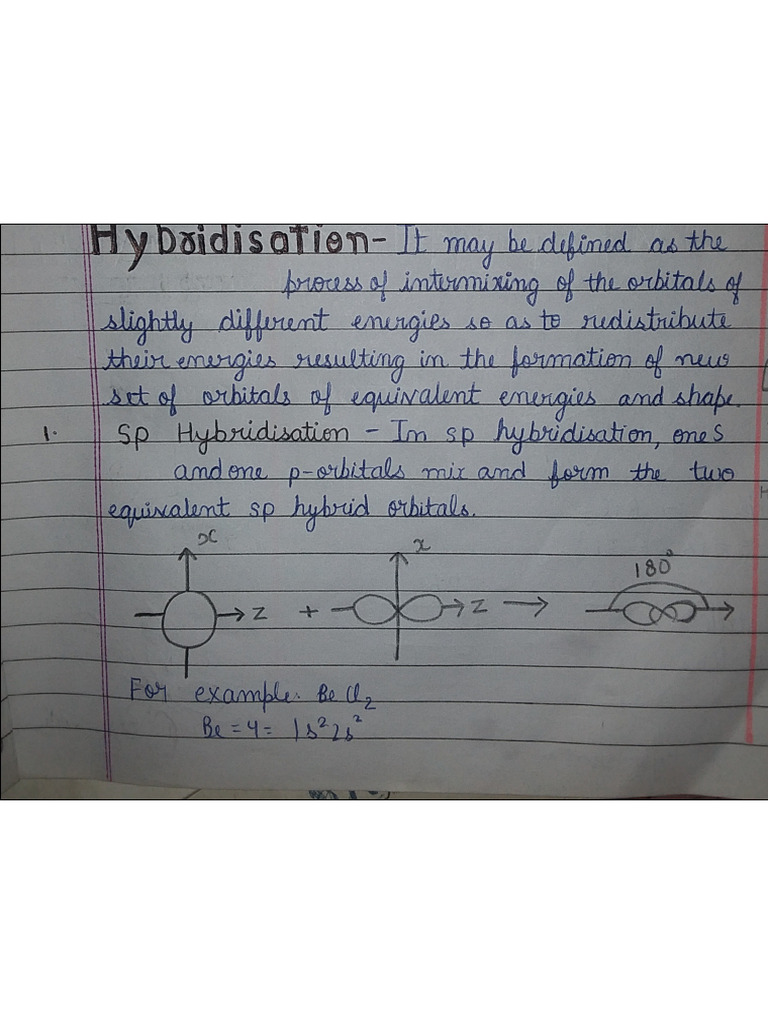 Hybridisation - It may be defined as the
process of intermixing of the orbitals of
slightly different energies so as to redistribute
their energies resulting in the formation of new
set of orbitals of equivalent energies and shape.
1. Sp Hybridisation - In sp hybridisation, one S
and one p-orbitals mix and form the two
equivalent sp hybrid orbitals.
x x 180°
Z + Z
For example: BeCl₂
Be = 4 = 1s² 2s²